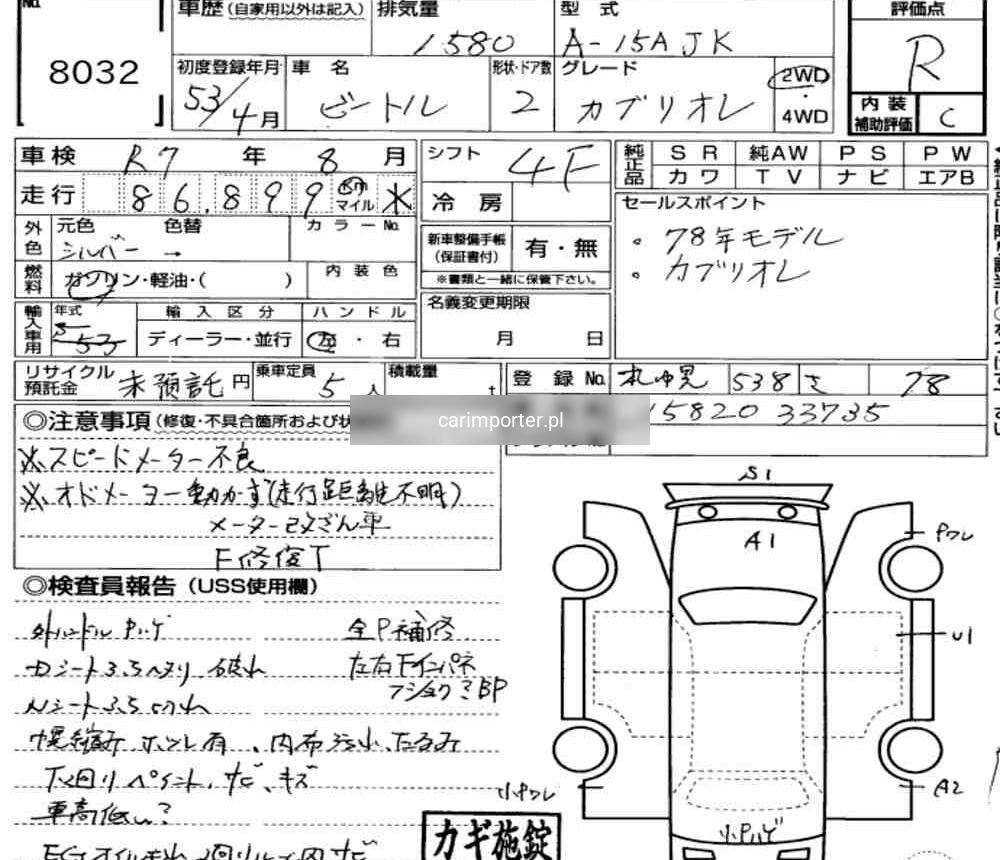 No.
8032
車歴(自家用以外は記入)
排気量
1580
型式
A-15AJK
評価点
R
初度登録年月
53/4月
車名
ビートル
形状・ドア数
2
グレード
カブリオレ
2WD
・
4WD
内装
補助評価
C
車検 R7 年 8 月
シフト
4F
純正品
SR 純AW PS PW
カワ TV ナビ エアB
走行 86,899 km
マイル
冷房
セールスポイント
。78年モデル
。カブリオレ
外色
元色 色替
シルバー →
カラーNo.
新車整備手帳
(保証書付)
有・無
※書類と一緒に保管下さい。
燃料
ガソリン・軽油・( )
内装色
名義変更期限
月 日
輸入車用
年式
53
輸入区分
ディーラー・並行
ハンドル
左・右
リサイクル
預託金
未預託 円
乗車定員
5人
積載量
t
登録No.
538 さ 78
15820 33735
carimporter.pl
◎注意事項(修復・不具合箇所および
※スピードメーター不良
※オドメーター動かず(走行距離不明)
メーター改ざん車
F修復T
◎検査員報告(USS使用欄)
外ハンドルPハゲ
全P補修
Dシート3.5ヘタリ 破れ
左右Fインパネ
Nシート3.5切れ
幌縮み ホツレ有、内布汚れ、たるみ
下回りペイント、サビ、キズ
車高低い?
S1
A1
Pワレ
U1
A2
小Pワレ
小Pハゲ
カギ施錠